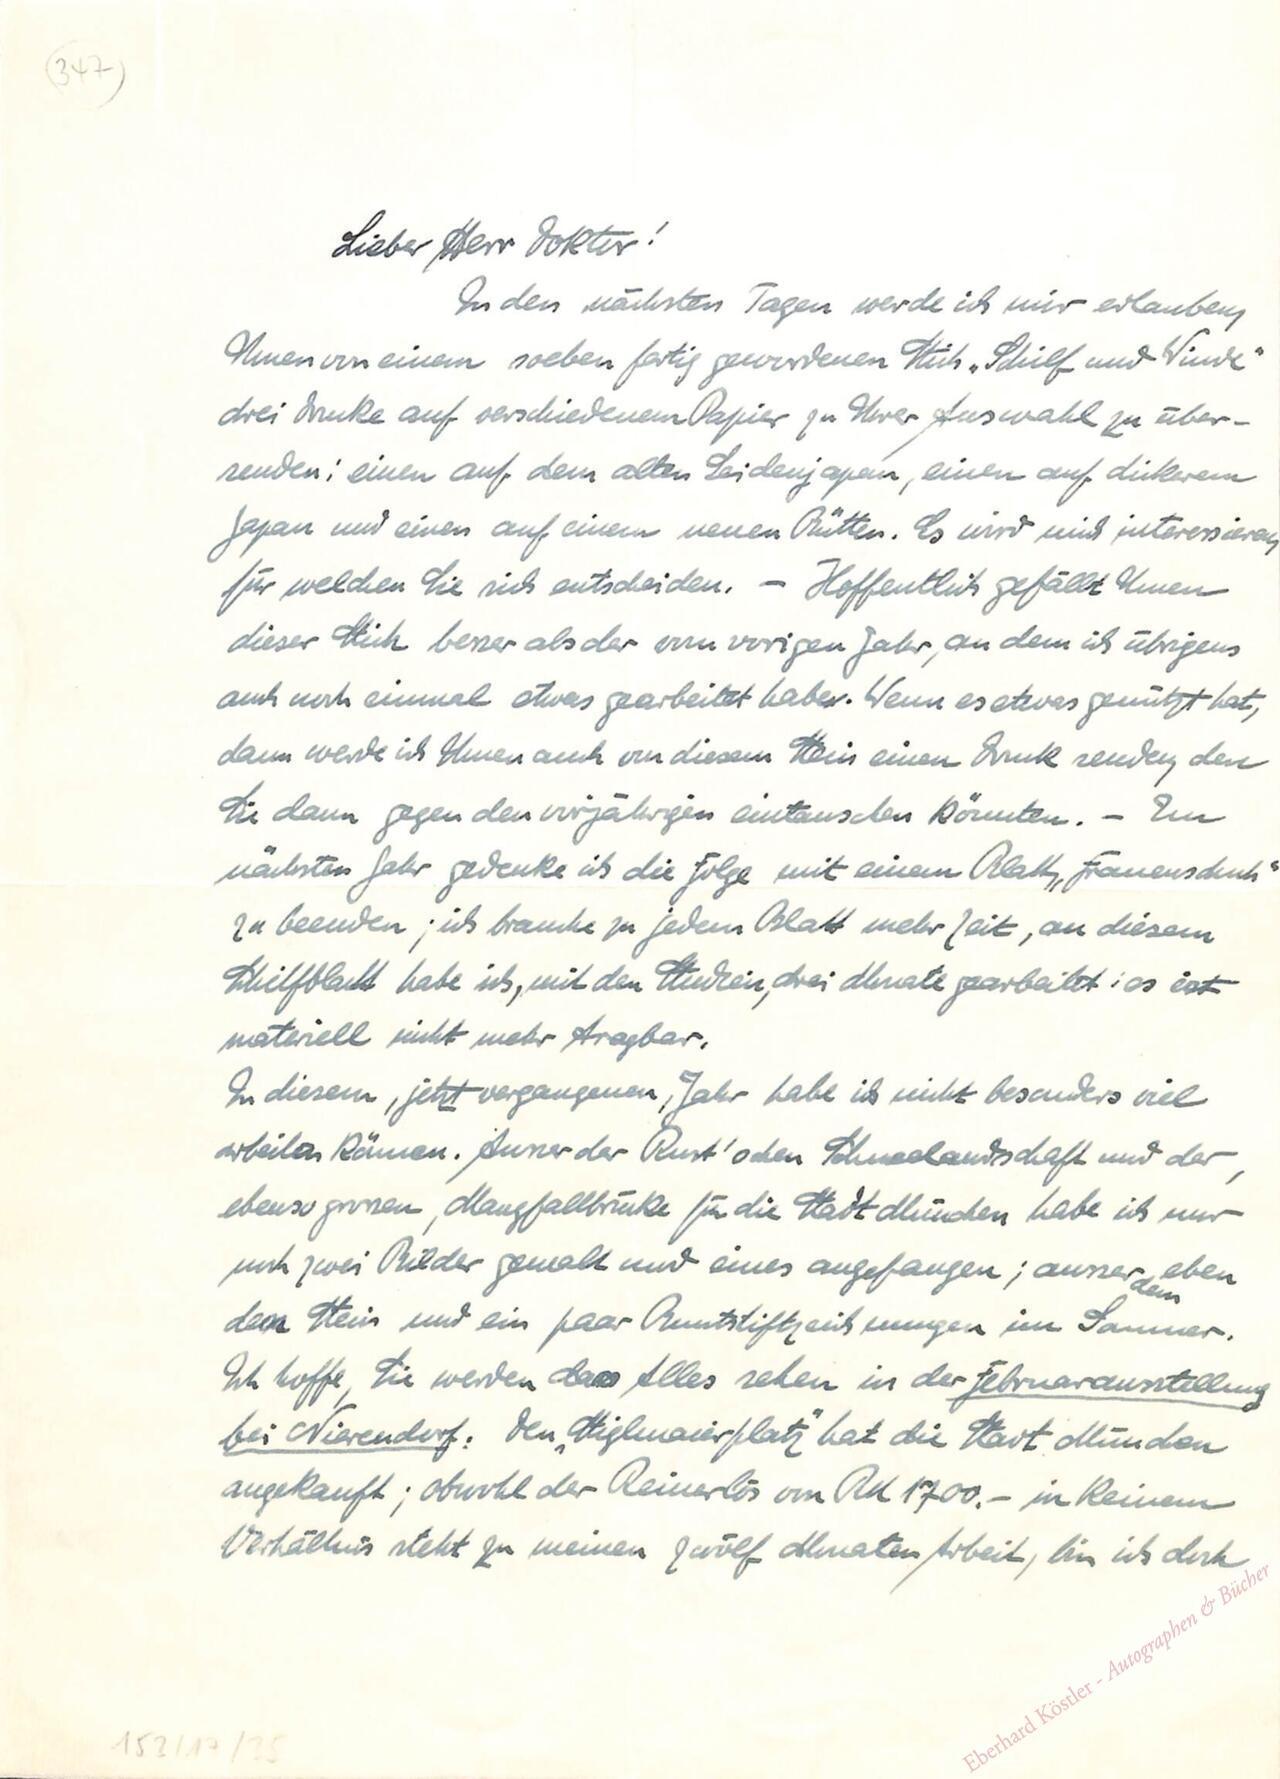 (347)
Lieber Herr Doktor!
In den nächsten Tagen werde ich mir erlauben,
Ihnen von einem soeben fertig gewordenen Stich „Schilf und Winde“
drei Drucke auf verschiedenem Papier zu Ihrer Auswahl zu über-
senden: einen auf dem alten Seidenjapan, einen auf dickerem
Japan und einen auf einem neuen Bütten. Es wird mich interessieren,
für welchen Sie sich entscheiden. – Hoffentlich gefällt Ihnen
dieser Stich besser als der vom vorigen Jahr, an dem ich übrigens
auch noch einmal etwas gearbeitet habe. Wenn es etwas genützt hat,
dann werde ich Ihnen auch von diesem Stein einen Druck senden, den
Sie dann gegen den vorjährigen eintauschen könnten. – Im
nächsten Jahr gedenke ich die Folge mit einem Blatt „Frauenschuh“
zu beenden; ich brauche zu jedem Blatt mehr Zeit, an diesem
Schilfblatt habe ich, mit den Studien, drei Monate gearbeitet: es ist
materiell nicht mehr tragbar.
In diesem, jetzt vergangenen, Jahr habe ich nicht besonders viel
arbeiten können. Ausser der Rust'schen Schneelandschaft und der,
ebenso grossen, Mangfallbrücke für die Stadt München habe ich nur
noch zwei Bilder gemalt und eines angefangen; ausserdem eben
den Stein und ein paar Buntstiftzeichnungen im Sommer.
Ich hoffe, Sie werden das Alles sehen in der Februarausstellung
bei Nierendorf. Den „Stiglmaierplatz“ hat die Stadt München
angekauft; obwohl der Reinerlös von RM 1700.– in keinem
Verhältnis steht zu meinen zwölf Monaten Arbeit, bin ich doch
Eberhard Köstler - Autographen & Bücher
153/17/35